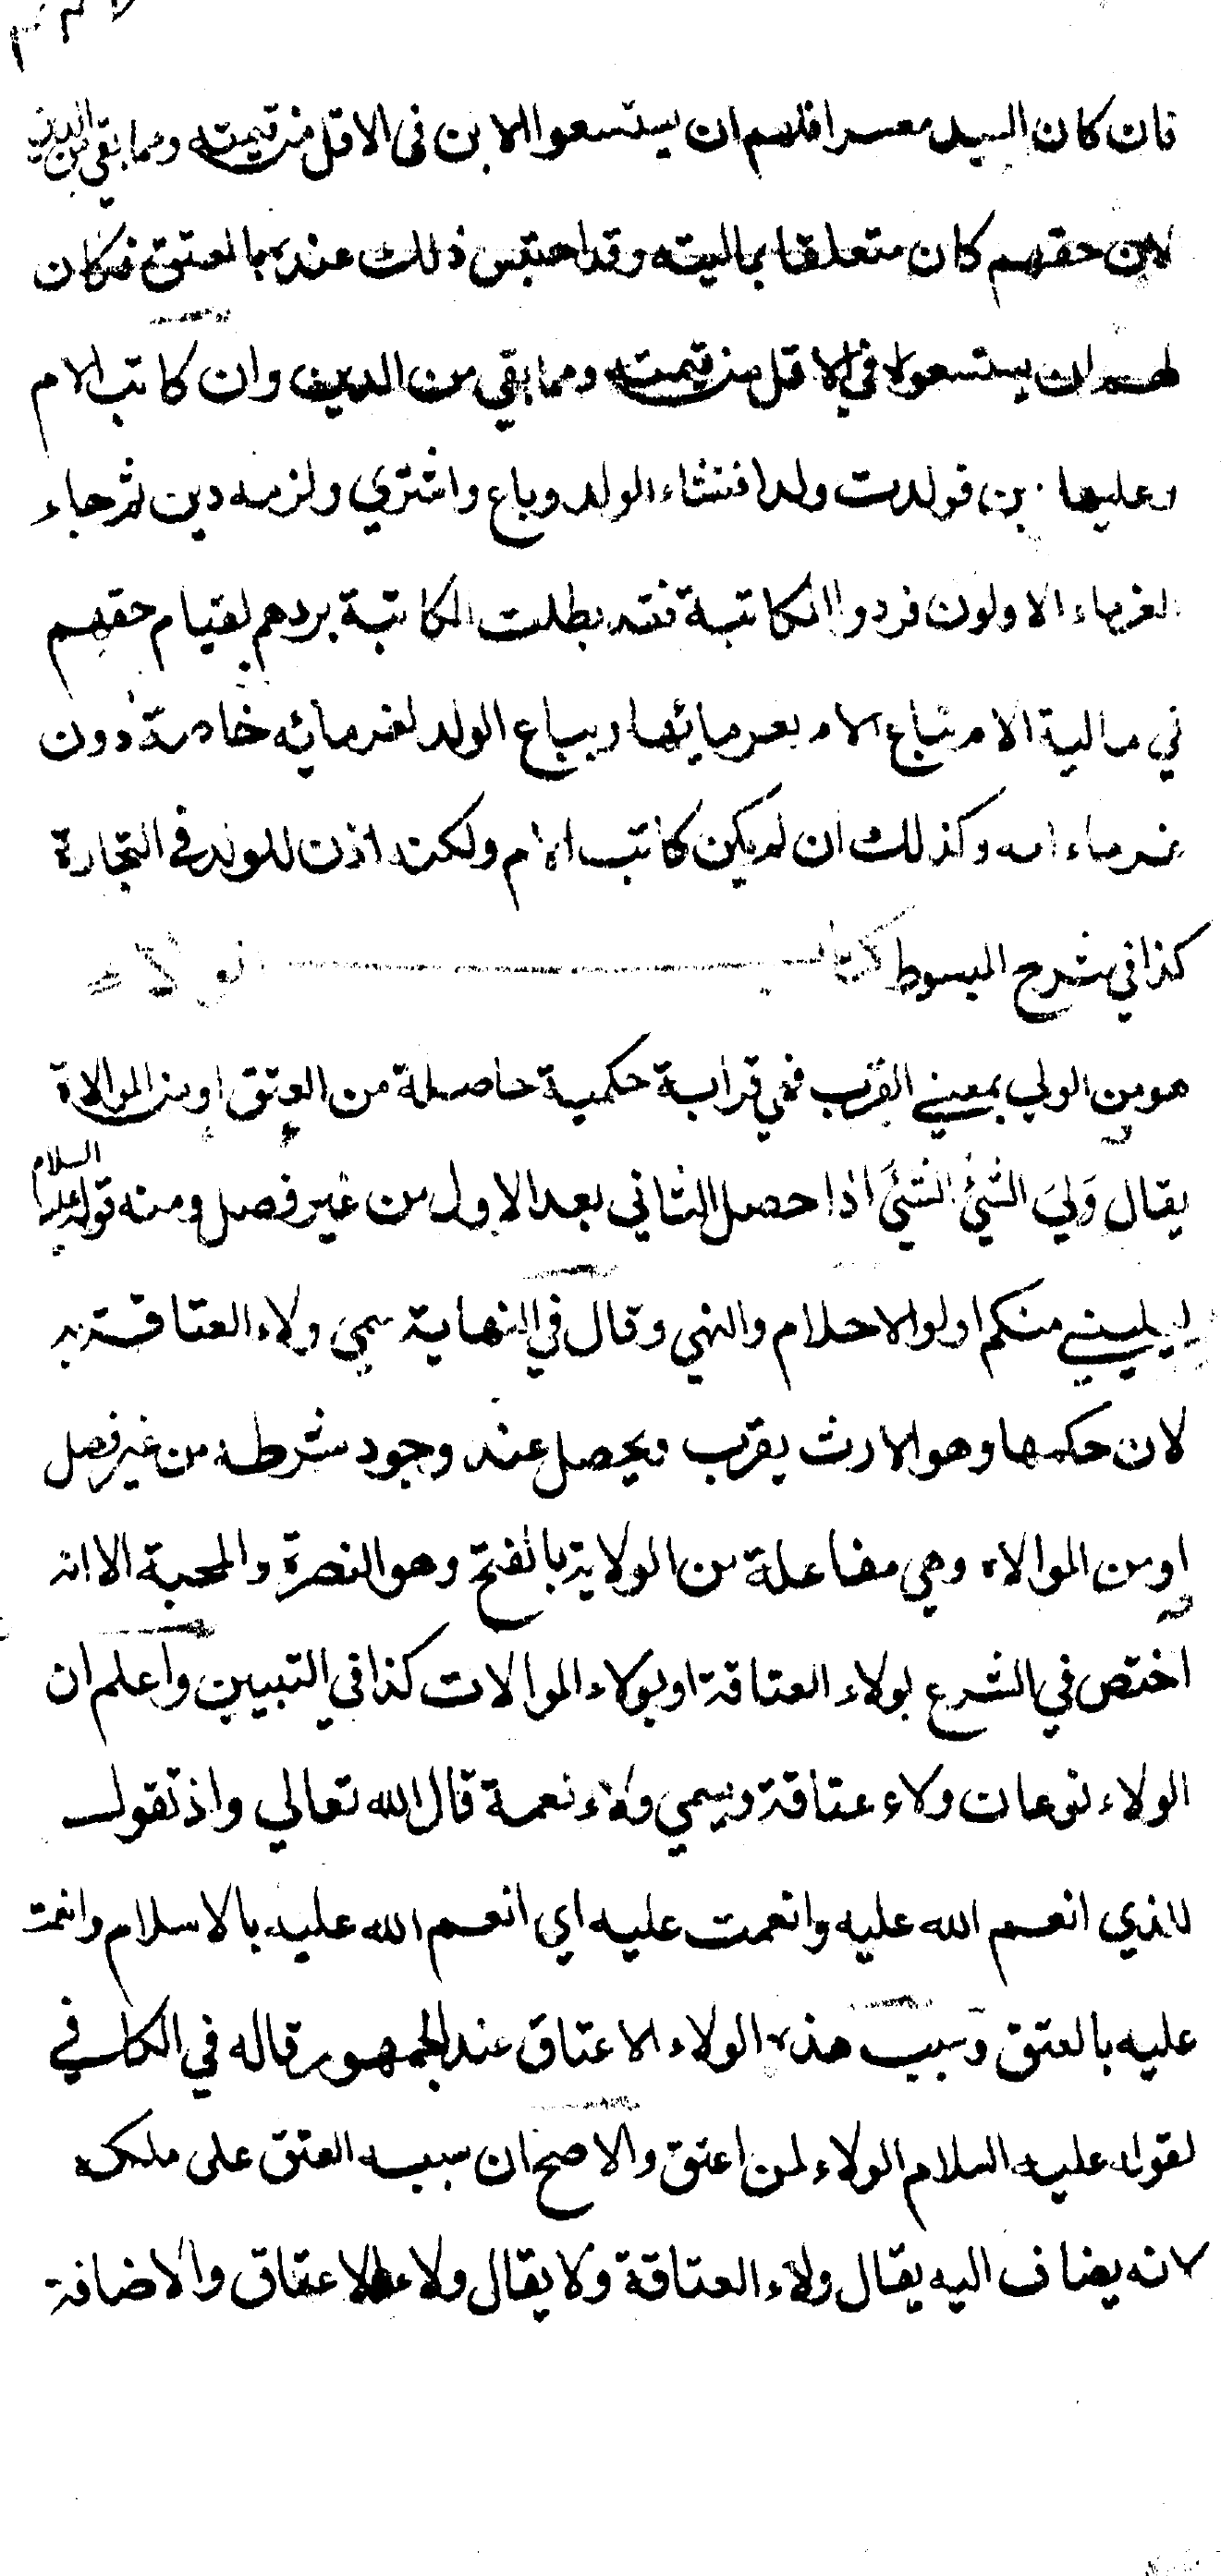 فان كان السيد معسرا فلهم ان يستسعوا الابن فى الاقل من قيمته ومما بقي من الدين
لان حقهم كان متعلقا بماليته وقد احتبس ذلك عنده بالعتق فكان
لهم ان يستسعوه في الاقل من قيمته ومما بقي من الدين وان كاتب الام
وعليها دين فولدت ولدا فنشاء الولد وباع واشتري ولزمه دين ثم جاء
الغرماء الاولون فردوا المكاتبة فقد بطلت المكاتبة بردهم لقيام حقهم
في مالية الام فتباع الام بغرمائها ويباع الولد لغرمائه خاصة دون
غرماء امه وكذلك ان لم يكن كاتب الام ولكنه اذن للولد في التجارة
كذا في شرح المبسوط كتاب الولاء
هو من الولي بمعني القرب فهي قرابة حكمية حاصلة من العتق او من الموالاة
يقال وَلِيَ الشيُ الشيَ اذا حصل الثاني بعد الاول من غير فصل ومنه قوله عليه السلام
ليليني منكم اولوا الاحلام والنهي وقال في النهاية سمي ولاء العتاقة به
لان حكمها وهو الارث يقرب ويحصل عند وجود شرطه من غير فصل
او من الموالاه وهي مفاعلة من الولاية بالفتح وهو النصرة والمحبة الا انه
اختص في الشرع بولاء العتاقة او بولاء الموالات كذا في التبيين واعلم ان
الولاء نوعان ولاء عتاقة ويسمي ولاء نعمة قال الله تعالي واذ تقول
للذي انعم الله عليه وانعمت عليه اي انعم الله عليه بالاسلام وانعمت
عليه بالعتق وسبب هذه الولاء الاعتاق عند الجمهور قاله في الكافي
لقوله عليه السلام الولاء لمن اعتق والاصح ان سببه العتق على ملكه
لانه يضاف اليه يقال ولاء العتاقة ولا يقال ولاء الاعتاق والاضافة